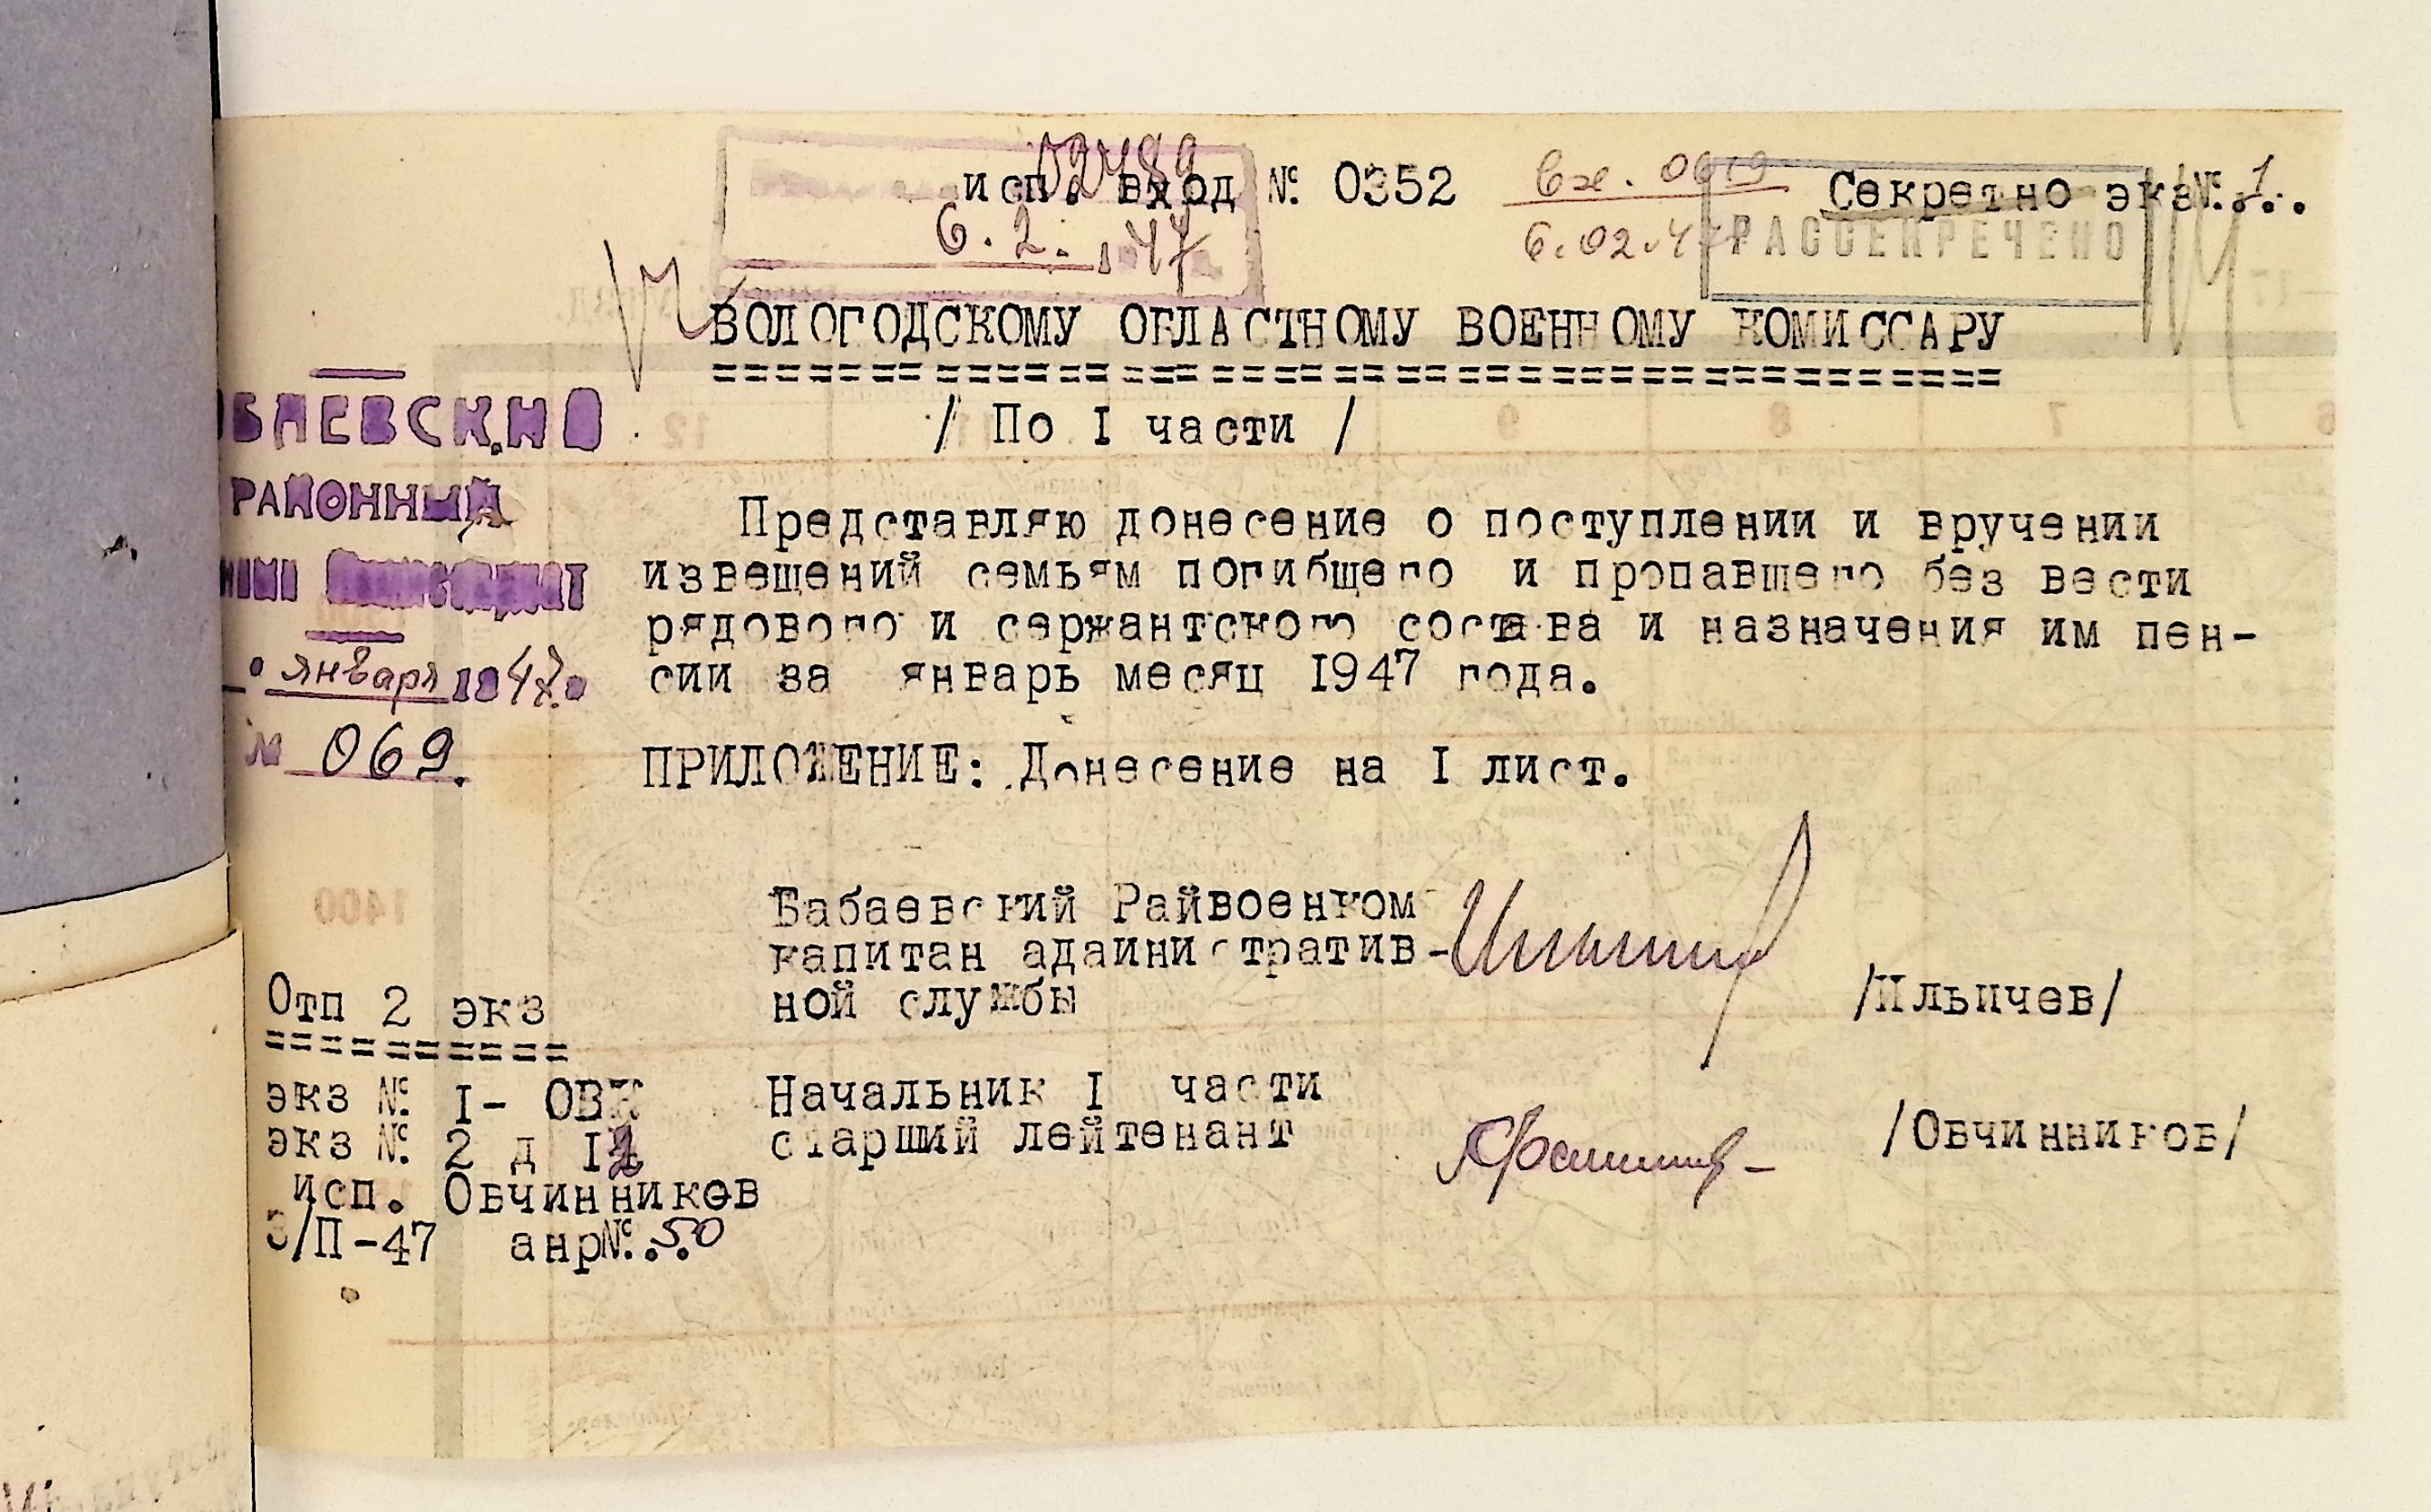 02489
исп. вход № 0352
Вх. 0619
Секретно экз№.1..
6. 2. 147
6.02.47
РАССЕКРЕЧЕНО
ВОЛОГОДСКОМУ ОБЛАСТНОМУ ВОЕННОМУ КОМИССАРУ
===========================================
/ По I части /
БАЕВСКИЙ
РАЙОННЫЙ
января 1947.
№ 069.
Представляю донесение о поступлении и вручении
извещений семьям погибщего и пропавшего без вести
рядового и сержантского состава и назначения им пен-
сии за январь месяц 1947 года.
ПРИЛОЖЕНИЕ: Донесение на I лист.
Бабаевский Райвоенком
капитан адаинистратив-
ной службы
/Ильичев/
Начальник I части
старший лейтенант
/Овчинников/
Отп 2 экз
==========
экз № I- ОВК
экз № 2 д I2
исп. Овчинников
3/П-47 анр№..50
1400
12
9
8
7
6